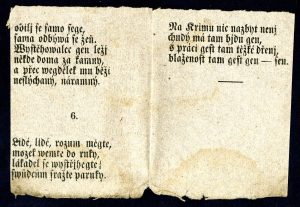 obilj se samo sege,
sama odbýwá se žeň.
Wystěhowalec gen ležj
někde doma za kamny,
a přec wegdělek mu běžj
neslýchaný, náramný.
6.
Lidé, lidé, rozum mějte,
mozek wemte do ruky,
lákadel se wystřjhegte;
swůdcům sražte paruky.
Na Krimu nic nazbyt nenj
chudý má tam bjdu gen,
s prácj gest tam těžké dřenj,
blaženost tam gest gen — sen.